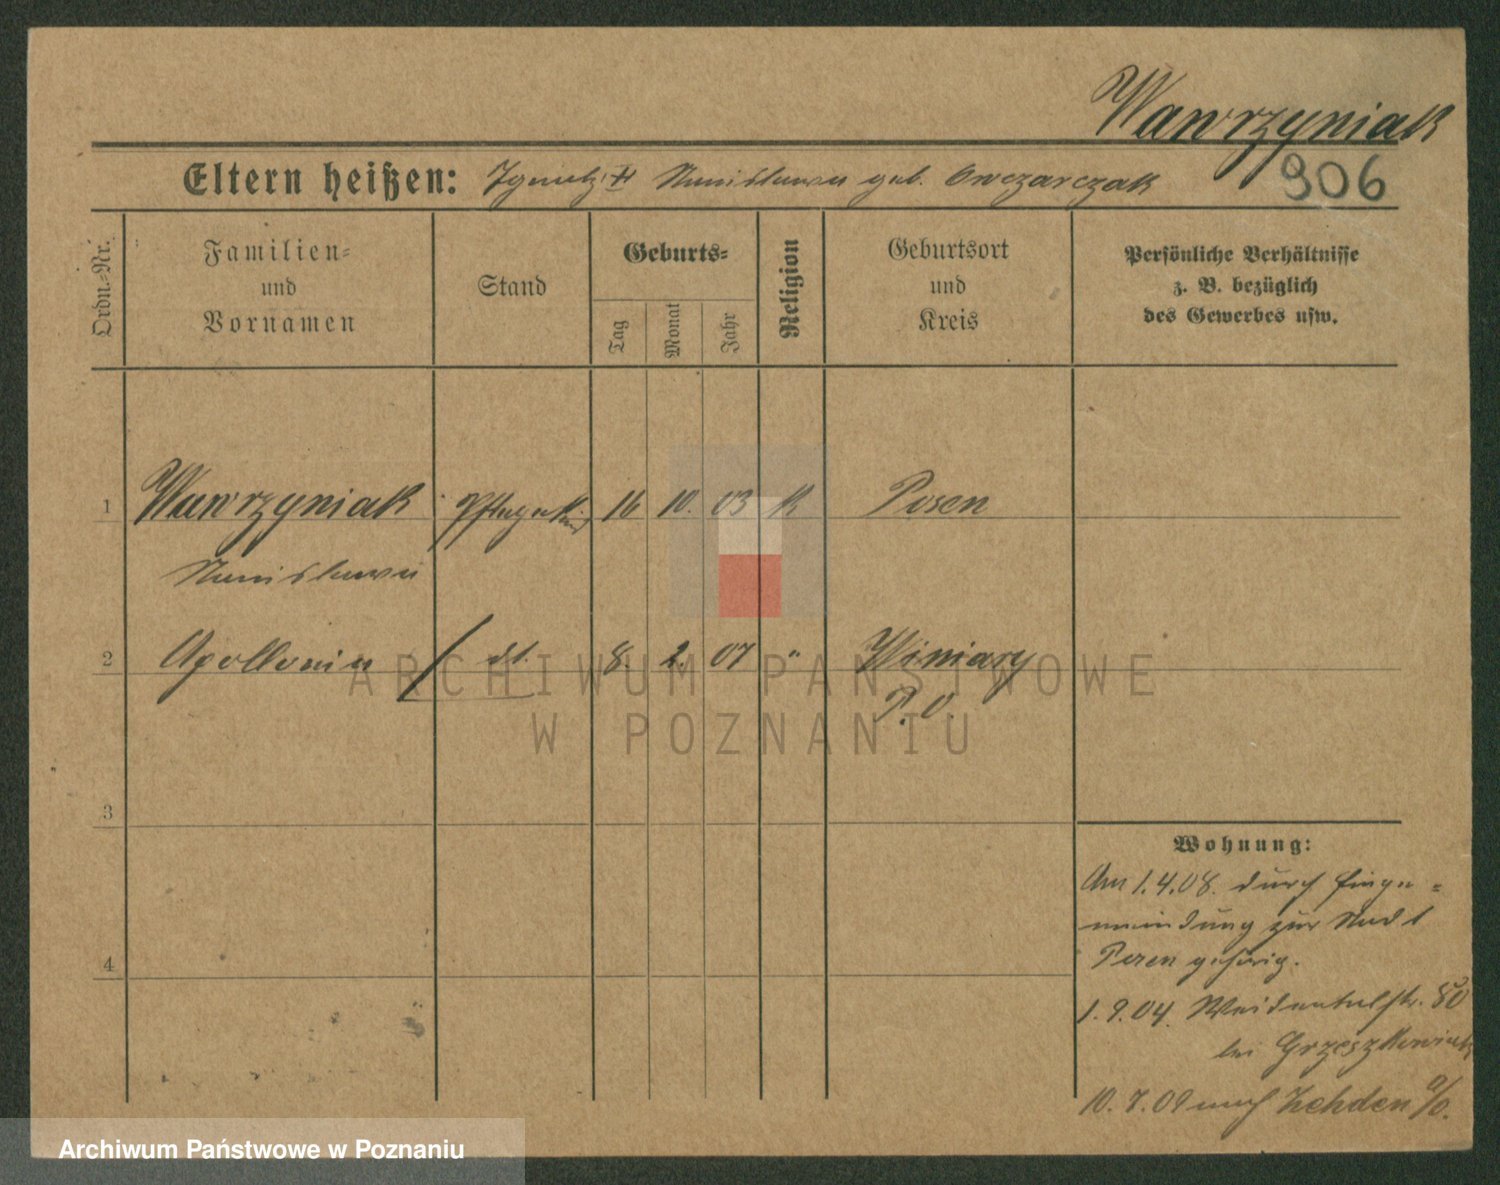 Wawrzyniak
906
Eltern heißen: Ignatz † Stanislawa geb. Owczarczak
Ordn.-Nr.
Familien-
und
Vornamen
Stand
Geburts-
Tag
Monat
Jahr
Religion
Geburtsort
und
Kreis
Persönliche Verhältnisse
z. B. bezüglich
des Gewerbes usw.
1 Wawrzyniak Pflegekind 16 10. 03 K Posen
Stanislawa
2 Apollonia dt. 8. 2. 07 " Winiary
P. O.
3
4
Wohnung:
Am 1.4.08. durch Einge=
meindung zur Stadt
Posen gehörig.
1.9.04. Weidentalstr. 80
bei Grzeszkowiak
10.7.09 nach Zehden a/O.
ARCHIWUM PAŃSTWOWE
W POZNANIU
Archiwum Państwowe w Poznaniu